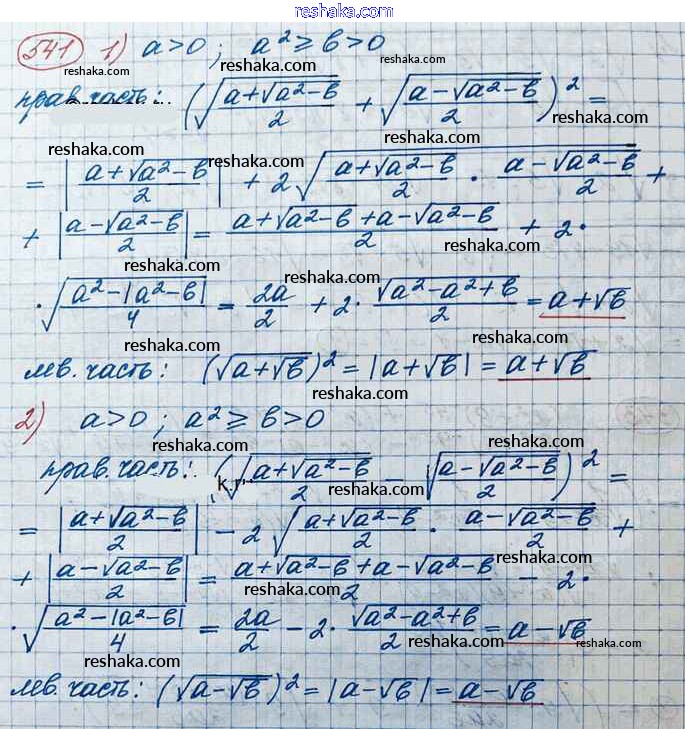 reshaka.com
541 1) a>0 ; a² ≥ b>0
reshaka.com
reshaka.com
прав.часть: (√((a+√(a²-b))/2) + √((a-√(a²-b))/2))² =
reshaka.com
reshaka.com
= |(a+√(a²-b))/2| + 2√((a+√(a²-b))/2 · (a-√(a²-b))/2) +
reshaka.com
+ |(a-√(a²-b))/2| = (a+√(a²-b)+a-√(a²-b))/2 + 2·
reshaka.com
reshaka.com
reshaka.com
·√((a²-|a²-b|)/4) = 2a/2 + 2· √(a²-a²+b)/2 = a+√b
reshaka.com
reshaka.com
лев.часть: (√(a+√b))² = |a+√b| = a+√b
reshaka.com
2) a>0 ; a² ≥ b>0
reshaka.com
reshaka.com
прав.часть: (√((a+√(a²-b))/2) - √((a-√(a²-b))/2))² =
reshaka.com
k.r
= |(a+√(a²-b))/2| - 2√((a+√(a²-b))/2 · (a-√(a²-b))/2) +
reshaka.com
reshaka.com
+ |(a-√(a²-b))/2| = (a+√(a²-b)+a-√(a²-b))/2 - 2·
reshaka.com
reshaka.com
·√((a²-|a²-b|)/4) = 2a/2 - 2· √(a²-a²+b)/2 = a-√b
reshaka.com
reshaka.com
reshaka.com
лев.часть: (√(a-√b))² = |a-√b| = a-√b
reshaka.com
reshaka.com